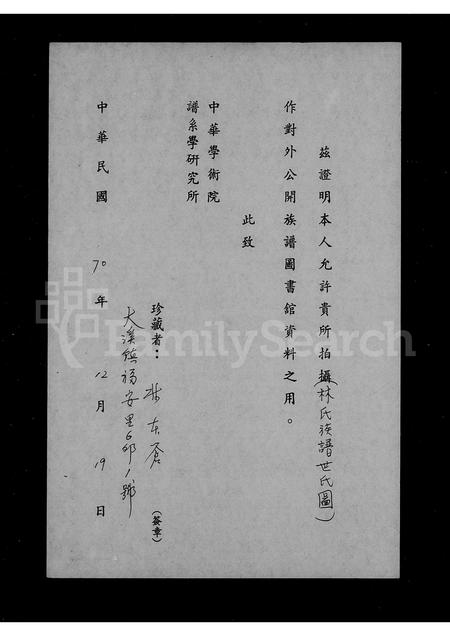 茲證明本人允許貴所拍攝(林氏族譜世氏圖)
作對外公開族譜圖書館資料之用。
此致
中華學術院
譜系學研究所
珍藏者：林東蒼 (簽章)
大溪鎮福安里6鄰1號
中華民國 70 年 12 月 19 日
FamilySearch